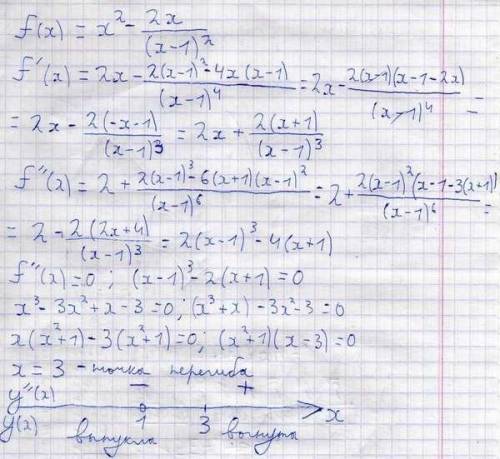 f(x) = x² - 2x/(x-1)²
f'(x) = 2x - (2(x-1)² - 4x(x-1))/(x-1)⁴ = 2x - (2(x-1)(x-1-2x))/(x-1)⁴ =
= 2x - (2(-x-1))/(x-1)³ = 2x + (2(x+1))/(x-1)³
f''(x) = 2 + (2(x-1)³ - 6(x+1)(x-1)²)/(x-1)⁶ = 2 + (2(x-1)²(x-1-3(x+1)))/(x-1)⁶ =
= 2 - (2(2x+4))/(x-1)³ = 2(x-1)³ - 4(x+1)
f''(x) = 0 ; (x-1)³ - 2(x+1) = 0
x³ - 3x² + x - 3 = 0 ; (x³ + x) - 3x² - 3 = 0
x(x²+1) - 3(x²+1) = 0 ; (x²+1)(x-3) = 0
x = 3 - точка перегиба
y''(x) - + x
y(x) выпукла 1 3 вогнута